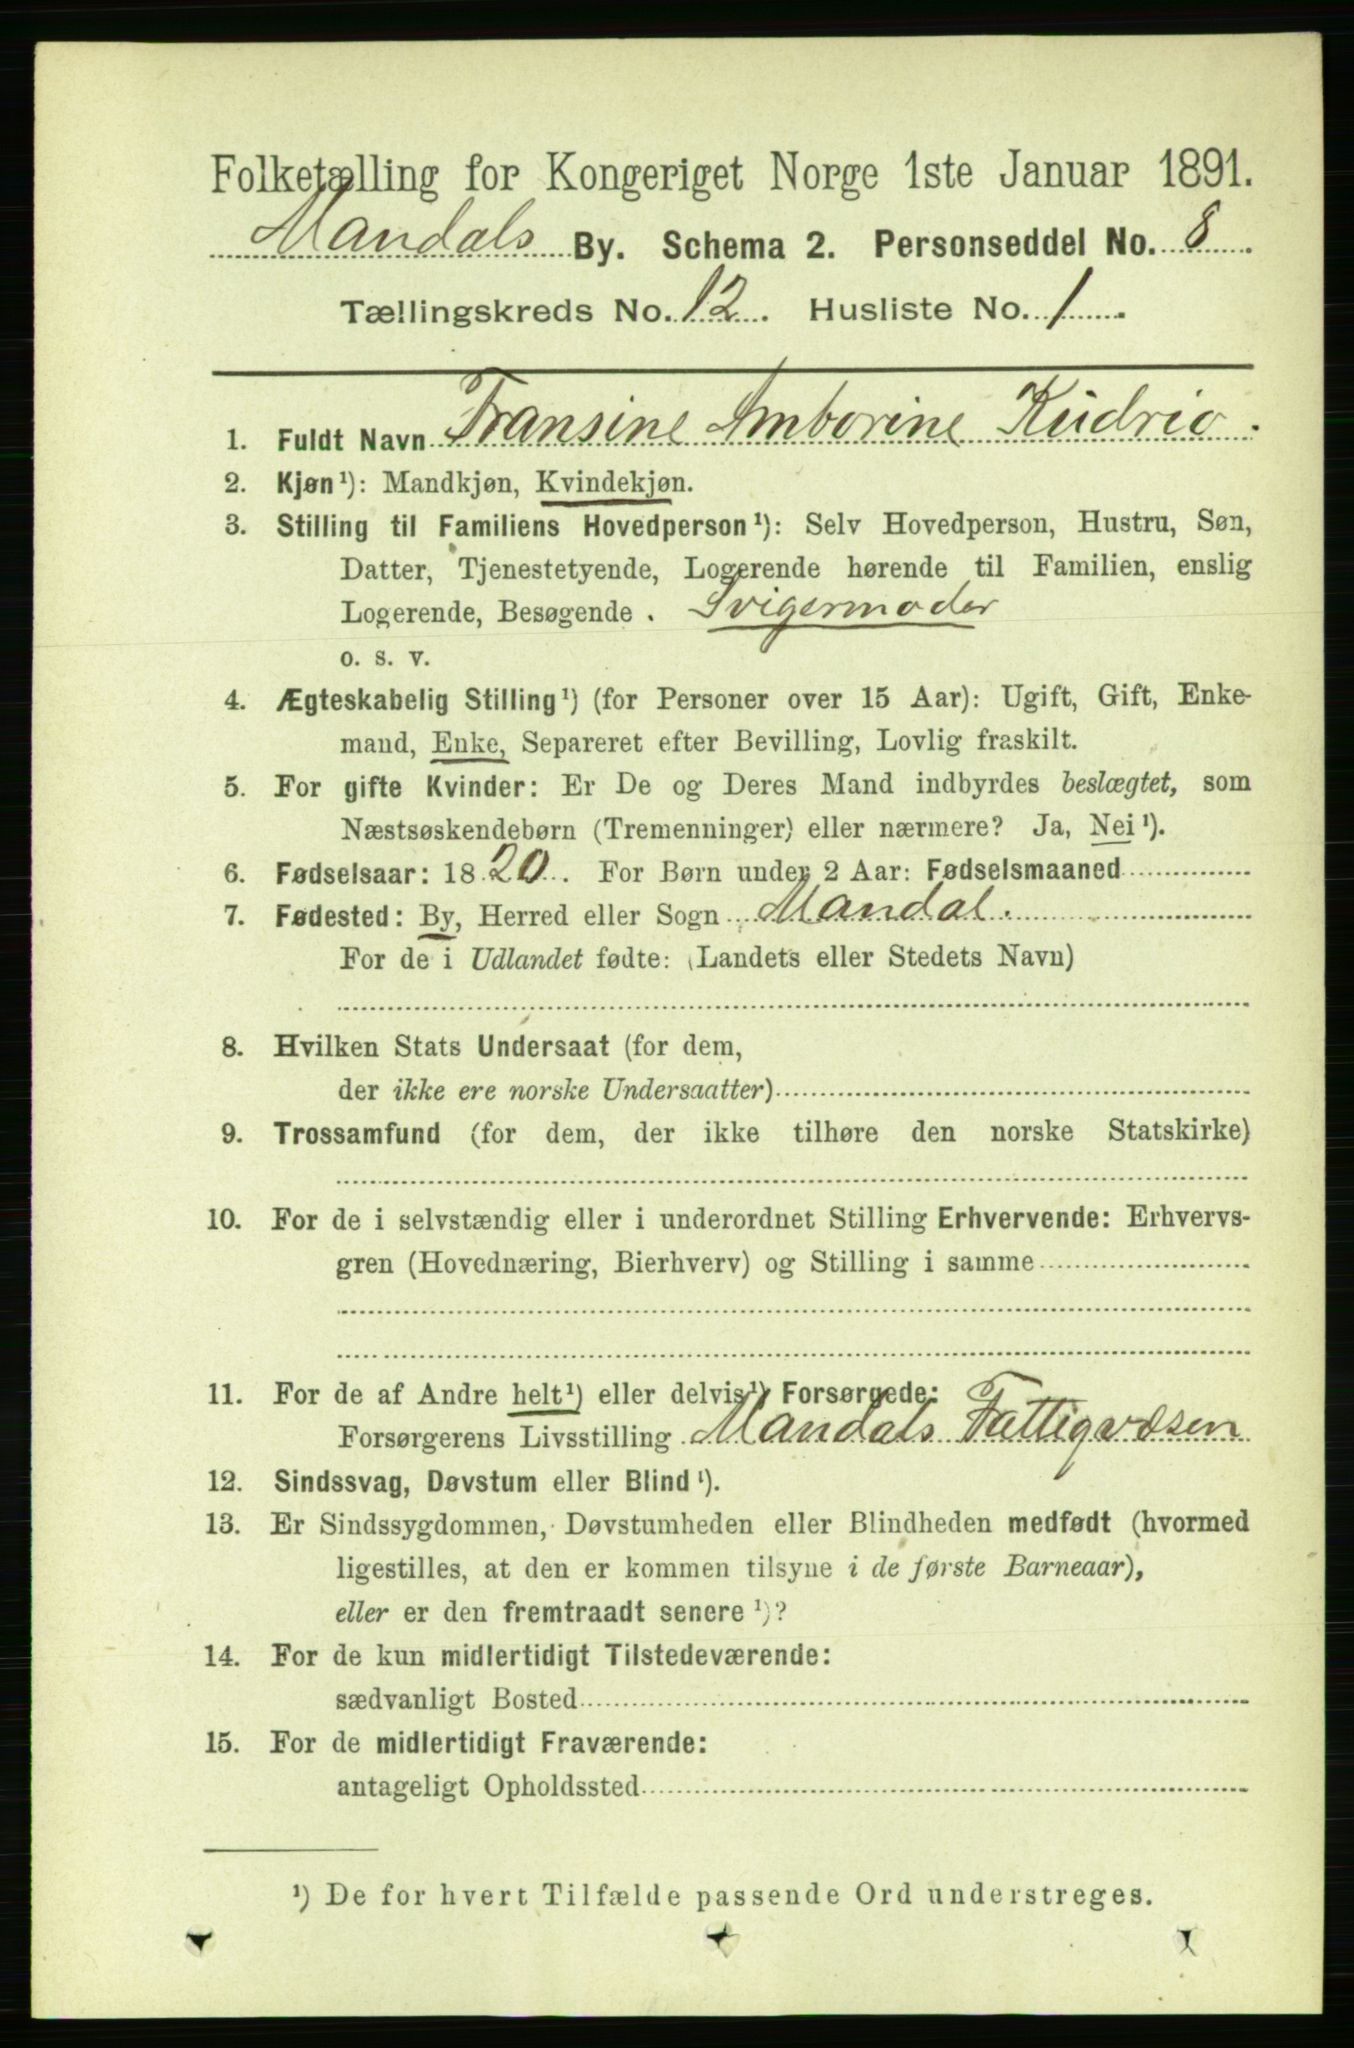 Folketælling for Kongeriget Norge 1ste Januar 1891.
Mandals By. Schema 2. Personseddel No. 8.
Tællingskreds No. 12. Husliste No. 1.
1. Fuldt Navn Fransine Amborine Küdrio.
2. Kjøn¹): Mandkjøn, Kvindekjøn.
3. Stilling til Familiens Hovedperson¹): Selv Hovedperson, Hustru, Søn,
Datter, Tjenestetyende, Logerende hørende til Familien, enslig
Logerende, Besøgende. Svigermoder
o. s. v.
4. Ægteskabelig Stilling¹) (for Personer over 15 Aar): Ugift, Gift, Enke-
mand, Enke, Separeret efter Bevilling, Lovlig fraskilt.
5. For gifte Kvinder: Er De og Deres Mand indbyrdes beslægtet, som
Næstsøskendebørn (Tremenninger) eller nærmere? Ja, Nei¹).
6. Fødselsaar: 1820. For Børn under 2 Aar: Fødselsmaaned
7. Fødested: By, Herred eller Sogn Mandal.
For de i Udlandet fødte: (Landets eller Stedets Navn)
8. Hvilken Stats Undersaat (for dem,
der ikke ere norske Undersaatter)
9. Trossamfund (for dem, der ikke tilhøre den norske Statskirke)
10. For de i selvstændig eller i underordnet Stilling Erhvervende: Erhvervs-
gren (Hovednæring, Bierhverv) og Stilling i samme
11. For de af Andre helt¹) eller delvis¹) Forsørgede:
Forsørgerens Livsstilling Mandals Fattigvæsen
12. Sindssvag, Døvstum eller Blind¹).
13. Er Sindssygdommen, Døvstumheden eller Blindheden medfødt (hvormed
ligestilles, at den er kommen tilsyne i de første Barneaar),
eller er den fremtraadt senere¹)?
14. For de kun midlertidigt Tilstedeværende:
sædvanligt Bosted
15. For de midlertidigt Fraværende:
antageligt Opholdssted
¹) De for hvert Tilfælde passende Ord understreges.